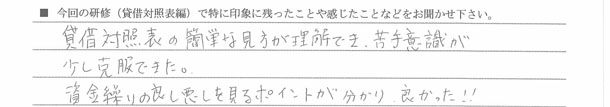 ■ 今回の研修（貸借対照表編）で特に印象に残ったことや感じたことなどをお聞かせ下さい。
貸借対照表の簡単な見方が理解でき、苦手意識が
少し克服できた。
資金繰りの良し悪しを見るポイントが分かり、良かった!!